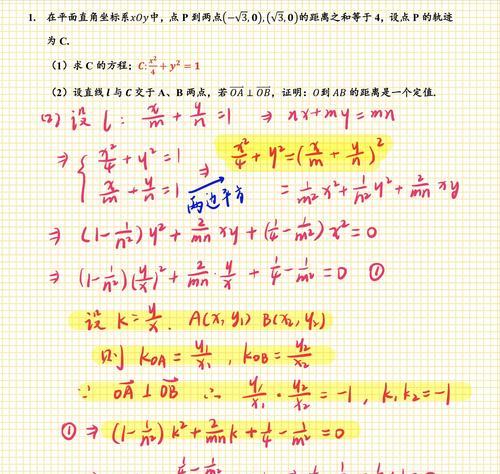 1. 在平面直角坐标系xOy中，点 P 到两点(−√3, 0), (√3, 0)的距离之和等于 4，设点 P 的轨迹
为 C.
（1）求 C 的方程；C: x²/4 + y² = 1
（2）设直线 l 与 C 交于 A、B 两点，若OA⊥OB，证明：O到 AB 的距离是一个定值.
(2) 设 l: x/m + y/n = 1 ⇒ nx+my=mn
⇒ { x²/4 + y² = 1 ⇒ x²/4 + y² = (x/m + y/n)²
x/m + y/n = 1 两边平方 = 1/m² x² + 1/n² y² + 2/mn xy
⇒ (1−1/n²) y² + 2/mn xy + (1/4 − 1/m²) x² = 0
⇒ (1−1/n²)(y/x)² + 2/mn · y/x + 1/4 − 1/m² = 0 ①
设 k = y/x . A(x, y₁) B(x₂, y₂)
则 kOA = y₁/x₁ , kOB = y₂/x₂
∵ OA ⊥ OB ∴ y₁/x₁ · y₂/x₂ = −1 , k₁k₂ = −1
① ⇒ (1−1/n²) k² + 2/mn k + 1/4 − 1/m² = 0